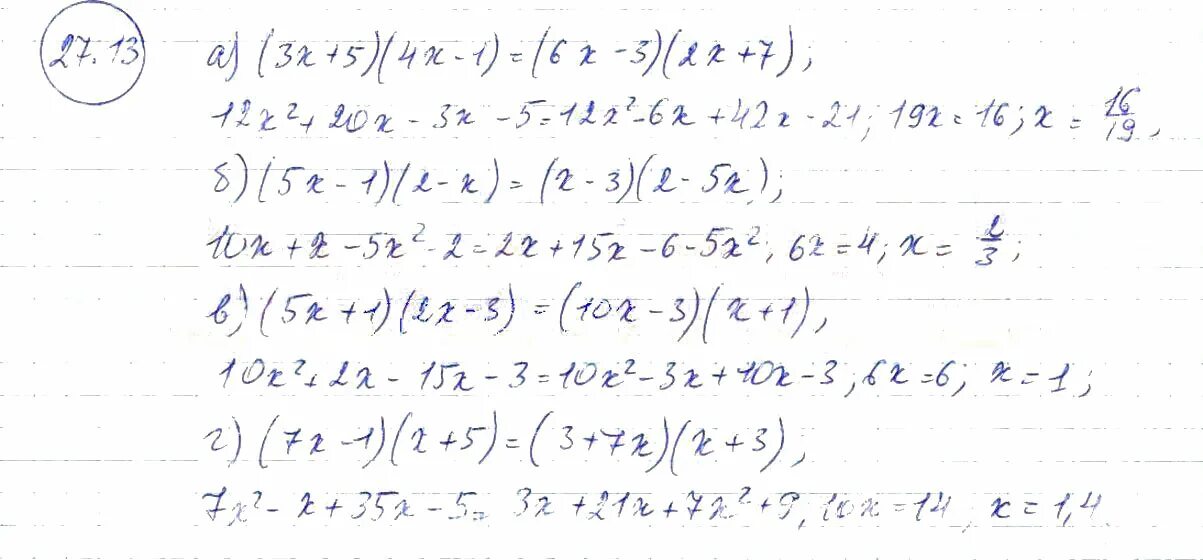 27.13 а) (3x+5)(4x-1)=(6x-3)(2x+7);
12x²+20x-3x-5=12x²-6x+42x-21; 19x=16; x=16/19,
б) (5x-1)(2-x)=(x-3)(2-5x);
10x+x-5x²-2=2x+15x-6-5x²; 6x=4; x=2/3;
в) (5x+1)(2x-3)=(10x-3)(x+1),
10x²+2x-15x-3=10x²-3x+10x-3; 6x=6; x=1;
г) (7x-1)(x+5)=(3+7x)(x+3);
7x²-x+35x-5=3x+21x+7x²+9, 10x=14, x=1,4